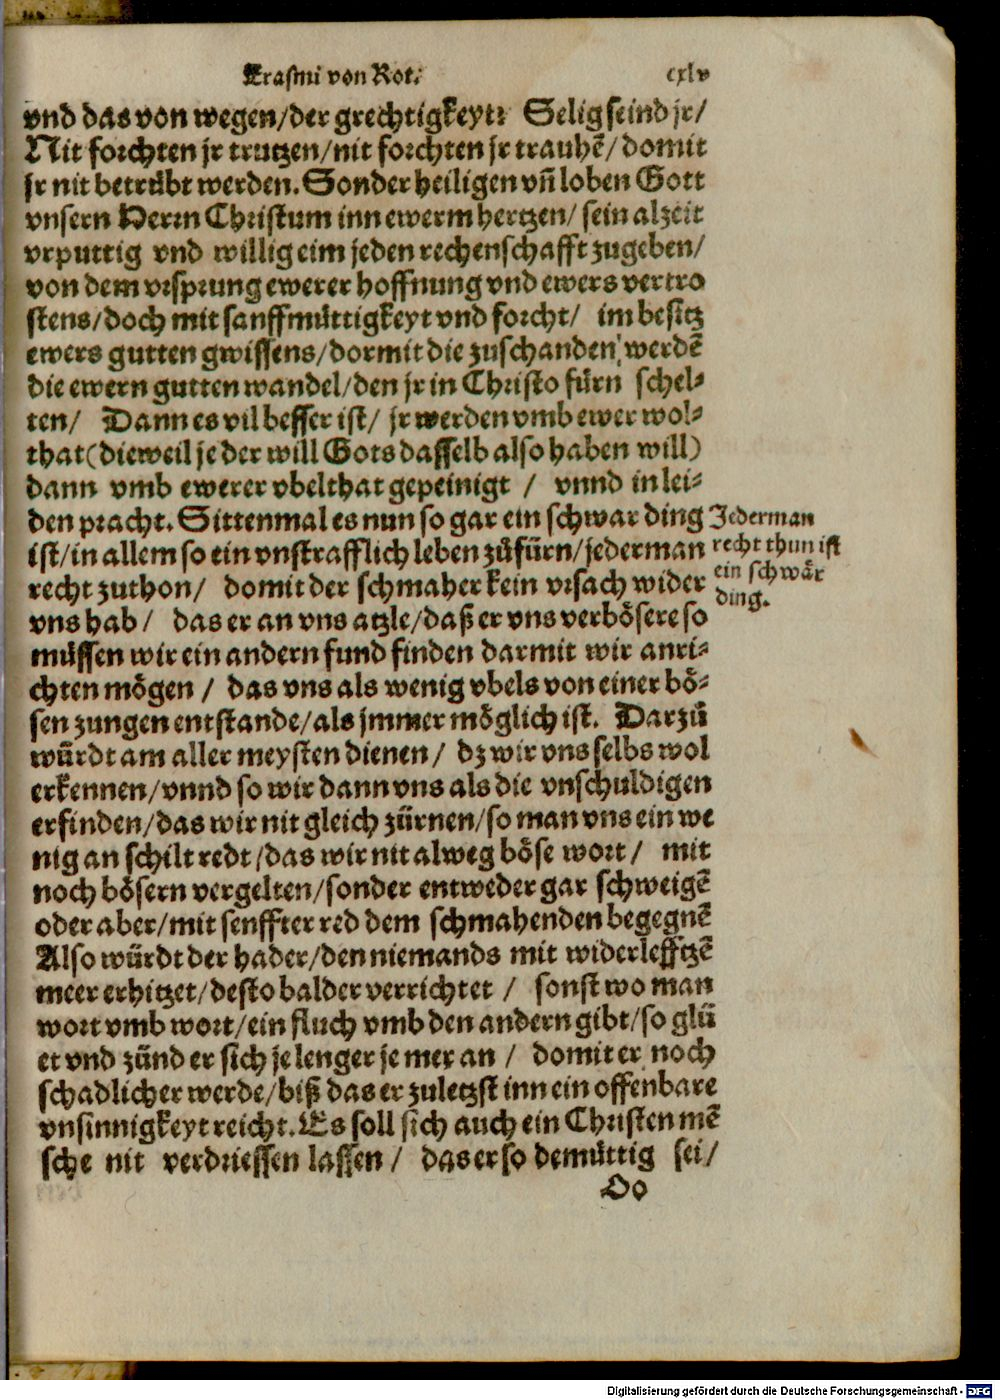 Erasmi von Rot.
cxlv
vnd das von wegen/der grechtigkeyt? Selig seind jr/
Nit forchten jr trutzen/nit forchten jr trauhẽ/domit
jr nit betruͤbt werden. Sonder heiligen vñ loben Gott
vnsern Herrn Christum inn ewerm hertzen/sein alzeit
vrputtig vnd willig eim jeden rechenschafft zugeben/
von dem vrsprung ewerer hoffnung vnd ewers vertro
stens/doch mit sanffmuͤttigkeyt vnd forcht/ im besitz
ewers gutten gwissens/dormit die zuschanden werdẽ
die ewern gutten wandel/den jr in Christo fuͤrn schel⸗
ten/ Dann es vil besser ist/ jr werden vmb ewer wol⸗
that(dieweil je der will Gots dasselb also haben will)
dann vmb ewerer vbelthat gepeinigt / vnnd in lei⸗
den pracht. Sittenmal es nun so gar ein schwar ding
ist/in allem so ein vnstrafflich leben zuͦfuͤrn/jederman
recht zuthon/ domit der schmaher kein vrsach wider
vns hab/ das er an vns atzle/daß er vns verboͤsere so
muͤssen wir ein andern fund finden darmit wir anri⸗
chten moͤgen / das vns als wenig vbels von einer boͤ⸗
sen zungen entstande/als jmmer moͤglich ist. Darzuͦ
wuͤrdt am aller meysten dienen/ dz wir vns selbs wol
erkennen/vnnd so wir dann vns als die vnschuldigen
erfinden/das wir nit gleich zuͤrnen/so man vns ein we
nig an schilt redt/das wir nit alweg boͤse wort/ mit
noch boͤsern vergelten/sonder entweder gar schweigẽ
oder aber/mit senffter red dem schmahenden begegnẽ
Also wuͤrdt der hader/den niemands mit widerlefftzẽ
meer erhitzet/desto balder verrichtet / sonst wo man
wort vmb wort/ein fluch vmb den andern gibt/so gluͤ
et vnd zuͤnd er sich je lenger je mer an / domit er noch
schadlicher werde/biß das er zuletzst inn ein offenbare
vnsinnigkeyt reicht. Es soll sich auch ein Christen mẽ
sche nit verdriessen lassen/ das er so demuͤttig sei/
Oo
Jederman
recht thun ist
ein schwaͤr
ding.
Digitalisierung gefördert durch die Deutsche Forschungsgemeinschaft - DFG